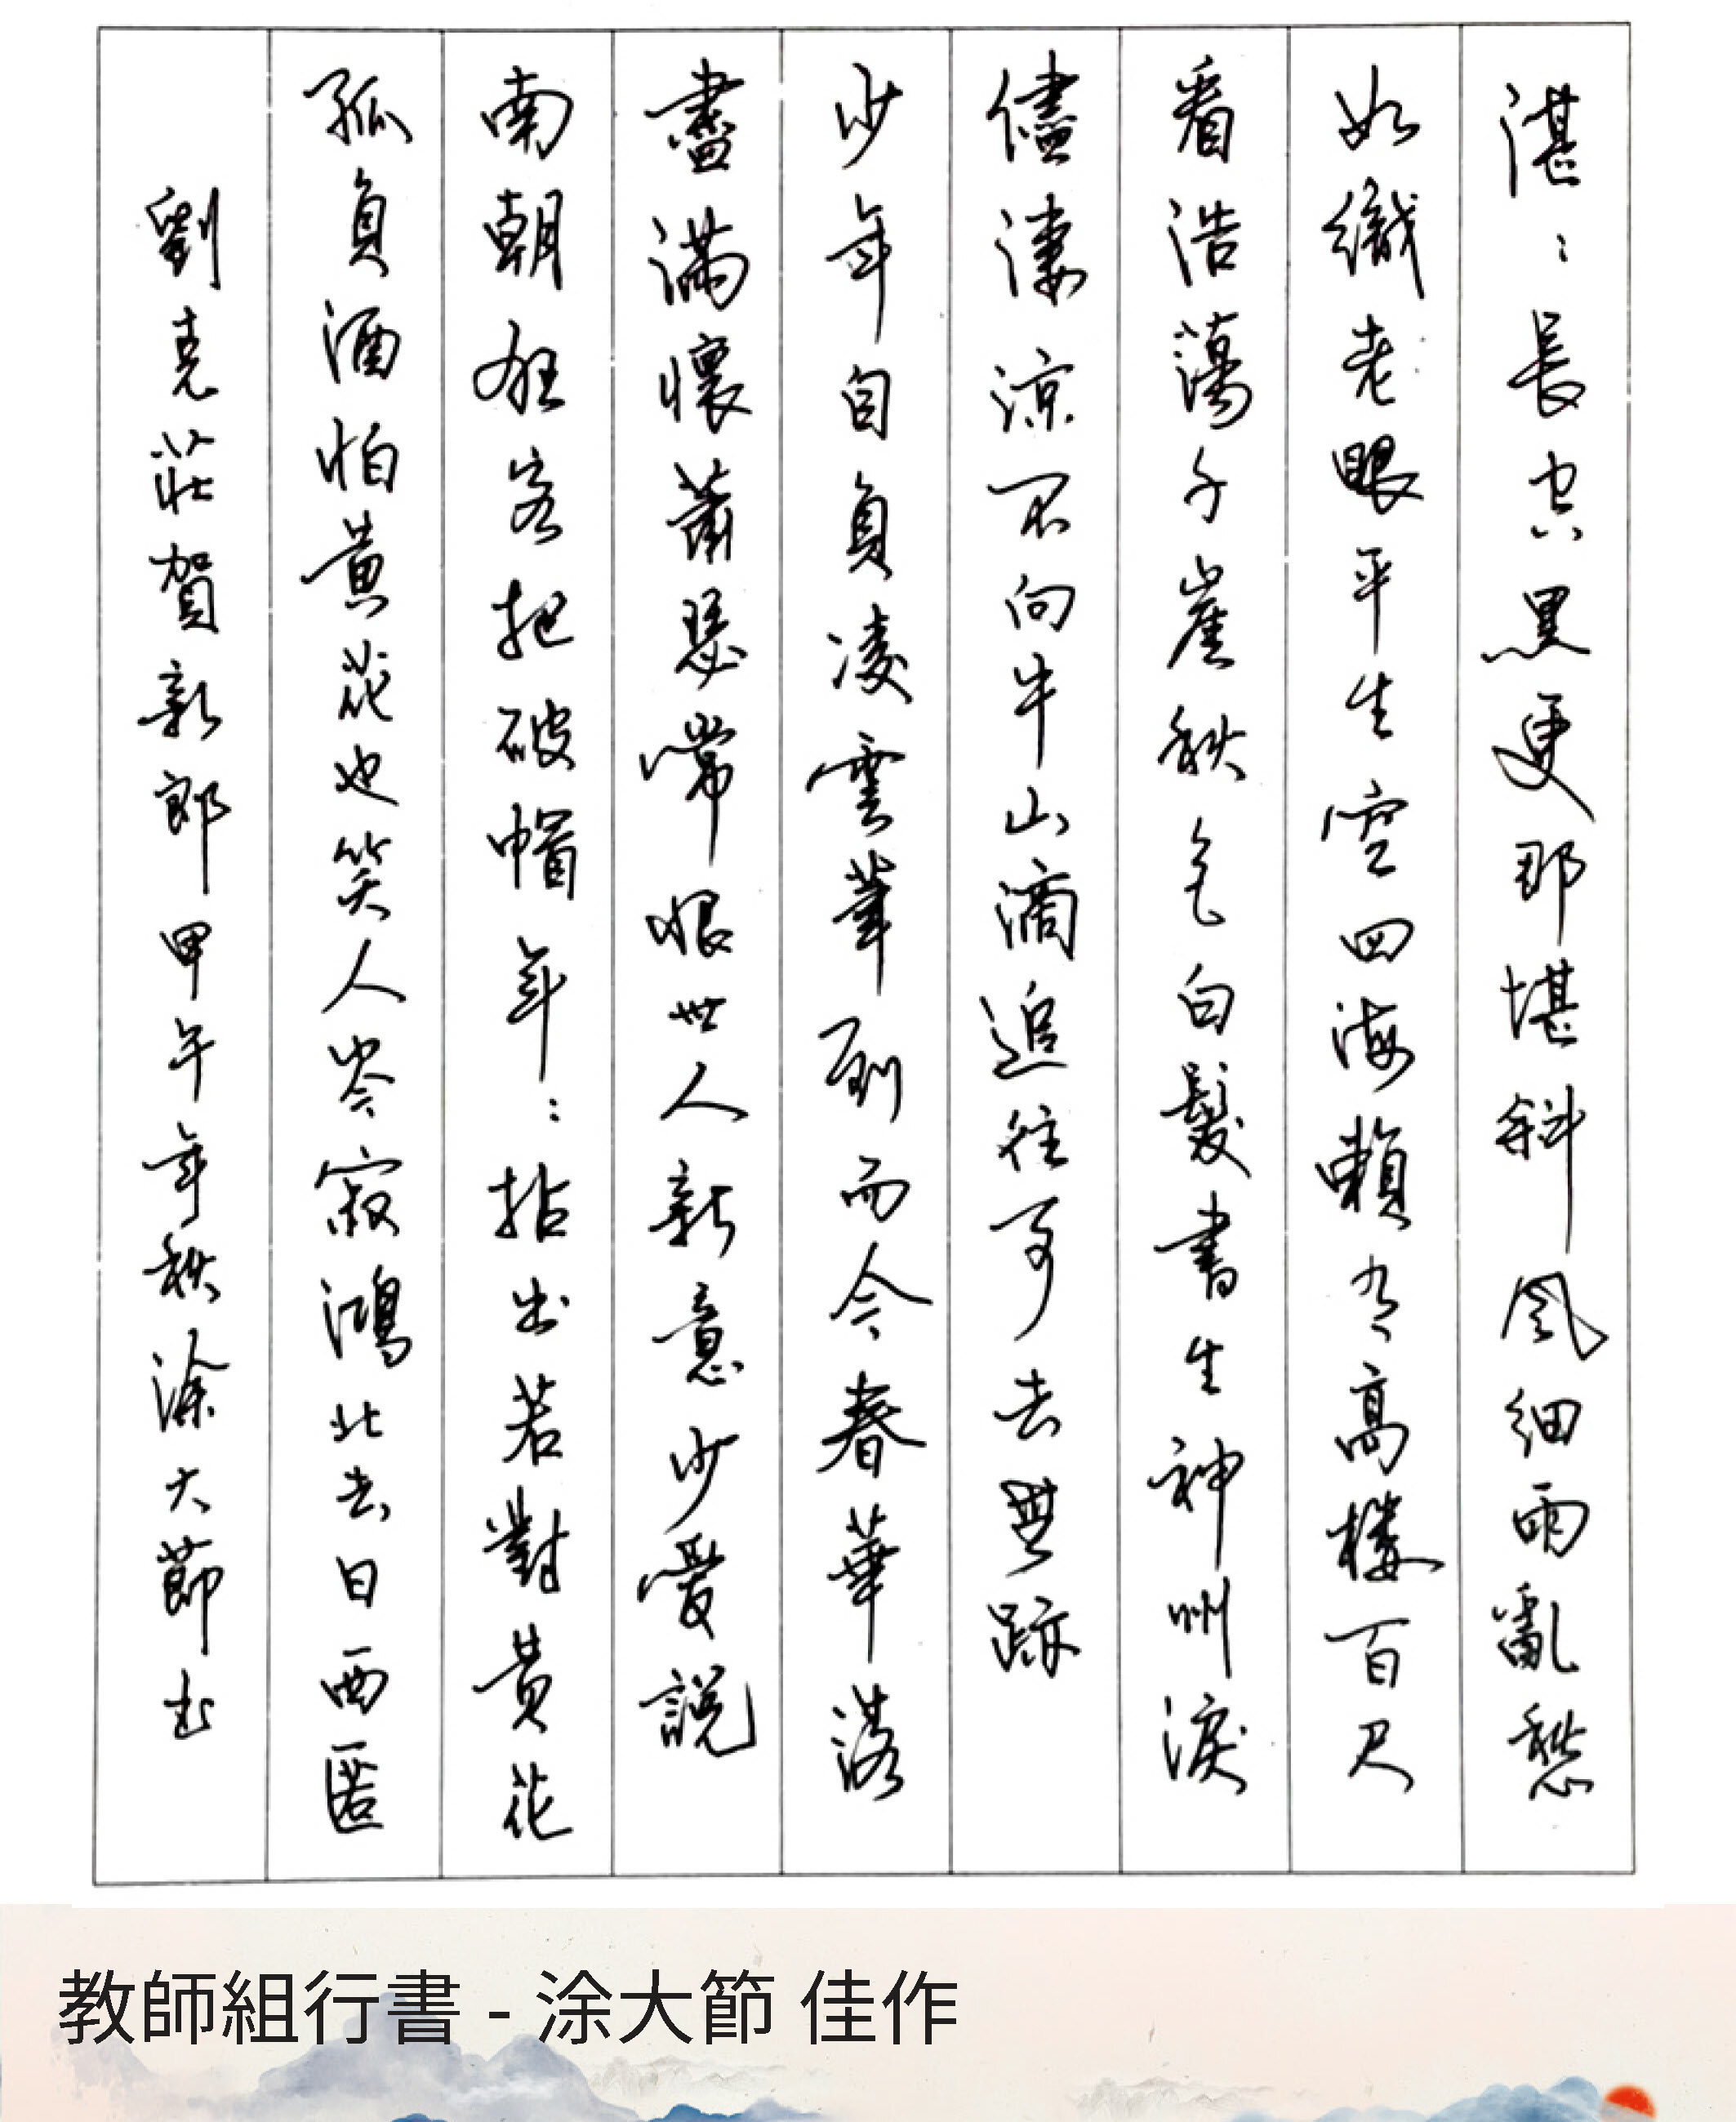 湛：長空黑更那堪斜風細雨亂愁
如織老眼平生空四海賴有高樓百尺
看浩蕩千崖秋氣白髮書生神州淚
儘淒涼不向牛山滴追往事去無跡
少年自負凌雲筆到而今春華落
盡滿懷蕭瑟常恨世人新意少愛說
南朝狂客把破帽年：拈出若對黃花
孤負酒怕黃花也笑人岑寂鴻北去日西匿
劉克莊賀新郎甲午年秋涂大節書
教師組行書 - 涂大節 佳作